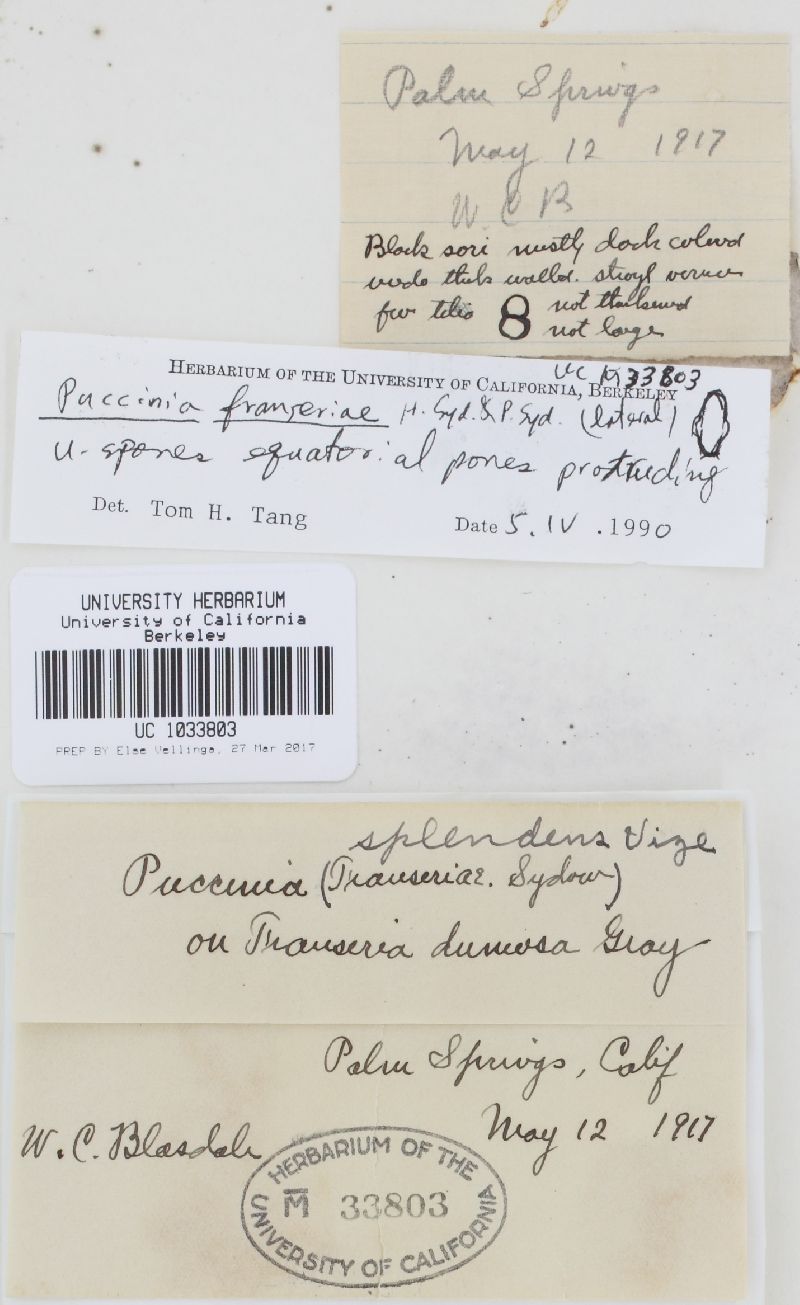 Palm Springs
May 12 1917
W. C B
Black sori mostly dark colored
thick walled.
few telia 8 not thickened
not large
HERBARIUM OF THE UNIVERSITY OF CALIFORNIA, BERKELEY
UC 1033803
Puccinia franseriae H. Syd. & P. Syd. (lateral)
u-spores equatorial pores protruding
Det. Tom H. Tang
Date 5. IV .1990
UNIVERSITY HERBARIUM
University of California
Berkeley
UC 1033803
PREP BY Else Vellinga, 27 Mar 2017
splendens Vize
Puccinia (Franseriae. Sydow)
on Franseria dumosa Gray
Palm Springs, Calif
May 12 1917
W. C. Blasdale
HERBARIUM OF THE
M 33803
UNIVERSITY OF CALIFORNIA